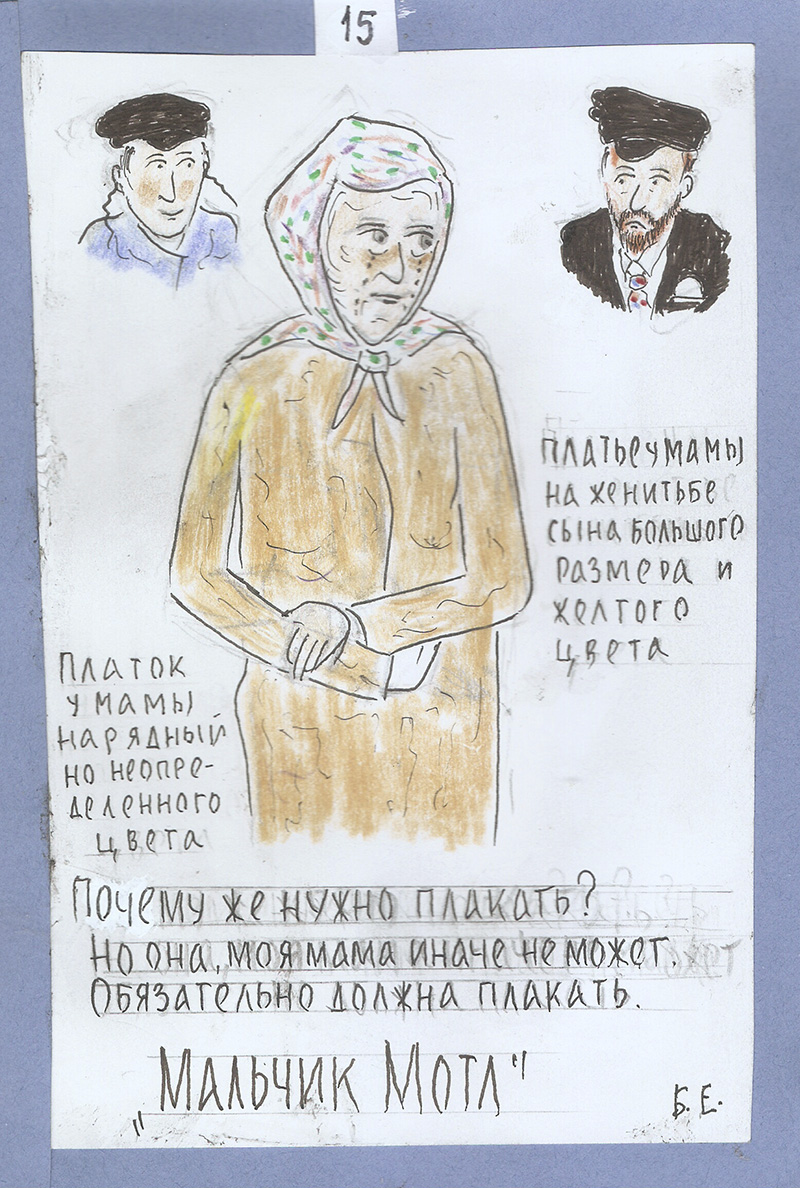 15
Платье у мамы
на женитьбе
сына большого
размера и
желтого
цвета
Платок
у мамы
нарядный
но неопре-
деленного
цвета
Почему же нужно плакать?
Но она, моя мама иначе не может.
Обязательно должна плакать.
„Мальчик Мотл"
Б. Е.